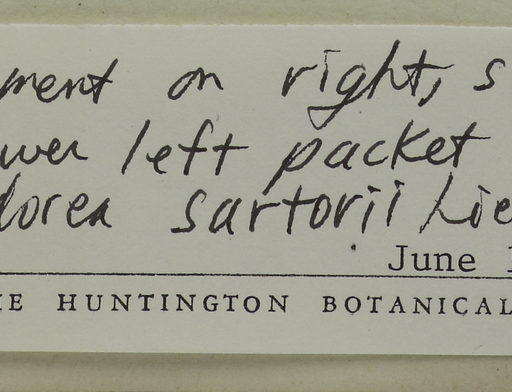 ment on right, s
wer left packet
dorea sartorii Lie
June 1
HE HUNTINGTON BOTANICAL